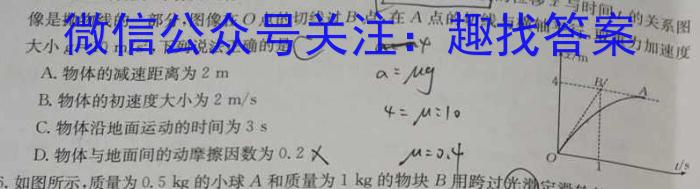 与时间t的关系图
像是抛物线的一部分,图像在O点的切线过B点,在A点的切线与
力加速度
大小
下列说法正确的是(
微信公众号关注:趣找答案
A. 物体的减速距离为 2 m
B. 物体的初速度大小为 2 m/s
C. 物体沿地面运动的时间为 3 s
D. 物体与地面间的动摩擦因数为 0.2 ×
a=μg
4=μ=10
μ=0.4
/m
4
B
A
O
1
t/s
6. 如图所示,质量为 0.5 kg 的小球 A 和质量为 1 kg 的物块 B 用跨过光滑定滑轮